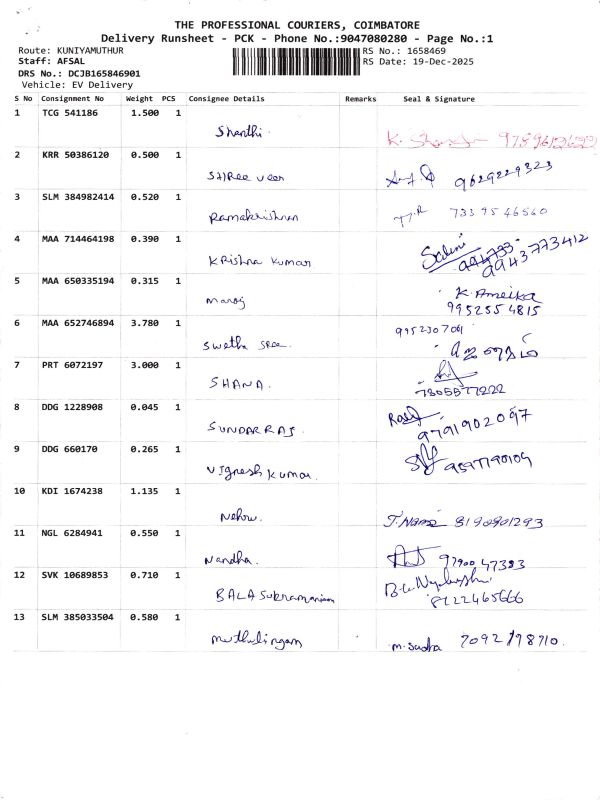 THE PROFESSIONAL COURIERS, COIMBATORE
Delivery Runsheet - PCK - Phone No.:9047080280 - Page No.:1
Route: KUNIYAMUTHUR
RS No.: 1658469
Staff: AFSAL
RS Date: 19-Dec-2025
DRS No.: DCJB165846901
Vehicle: EV Delivery
S No Consignment No Weight PCS Consignee Details Remarks Seal & Signature
1 TCG 541186 1.500 1
Shanthi.
2 KRR 50386120 0.500 1
Shree veen 9629229323
3 SLM 384982414 0.520 1
Ramakrishnan 7339546560
4 MAA 714464198 0.390 1
Krishna Kumar 9943773412
5 MAA 650335194 0.315 1
K. Ameika
9952554815
6 MAA 652746894 3.780 1
9952307061
Swetha Sree
7 PRT 6072197 3.000 1
SHANA.
8 DDG 1228908 0.045 1
SUNDARRAJ 9791902097
9 DDG 660170 0.265 1
Vignesh Kumar. 9597190109
10 KDI 1674238 1.135 1
Nehru. 8190901293
11 NGL 6284941 0.550 1
Nandha. 9790047383
12 SVK 10689853 0.710 1
BALA Subramaniam 8122465666
13 SLM 385033504 0.580 1
Muthulingam M. Sudha 7092198710.